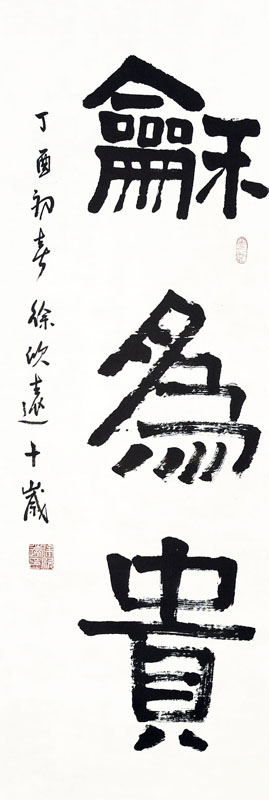 龢為貴
丁酉初春徐欣遠十歲